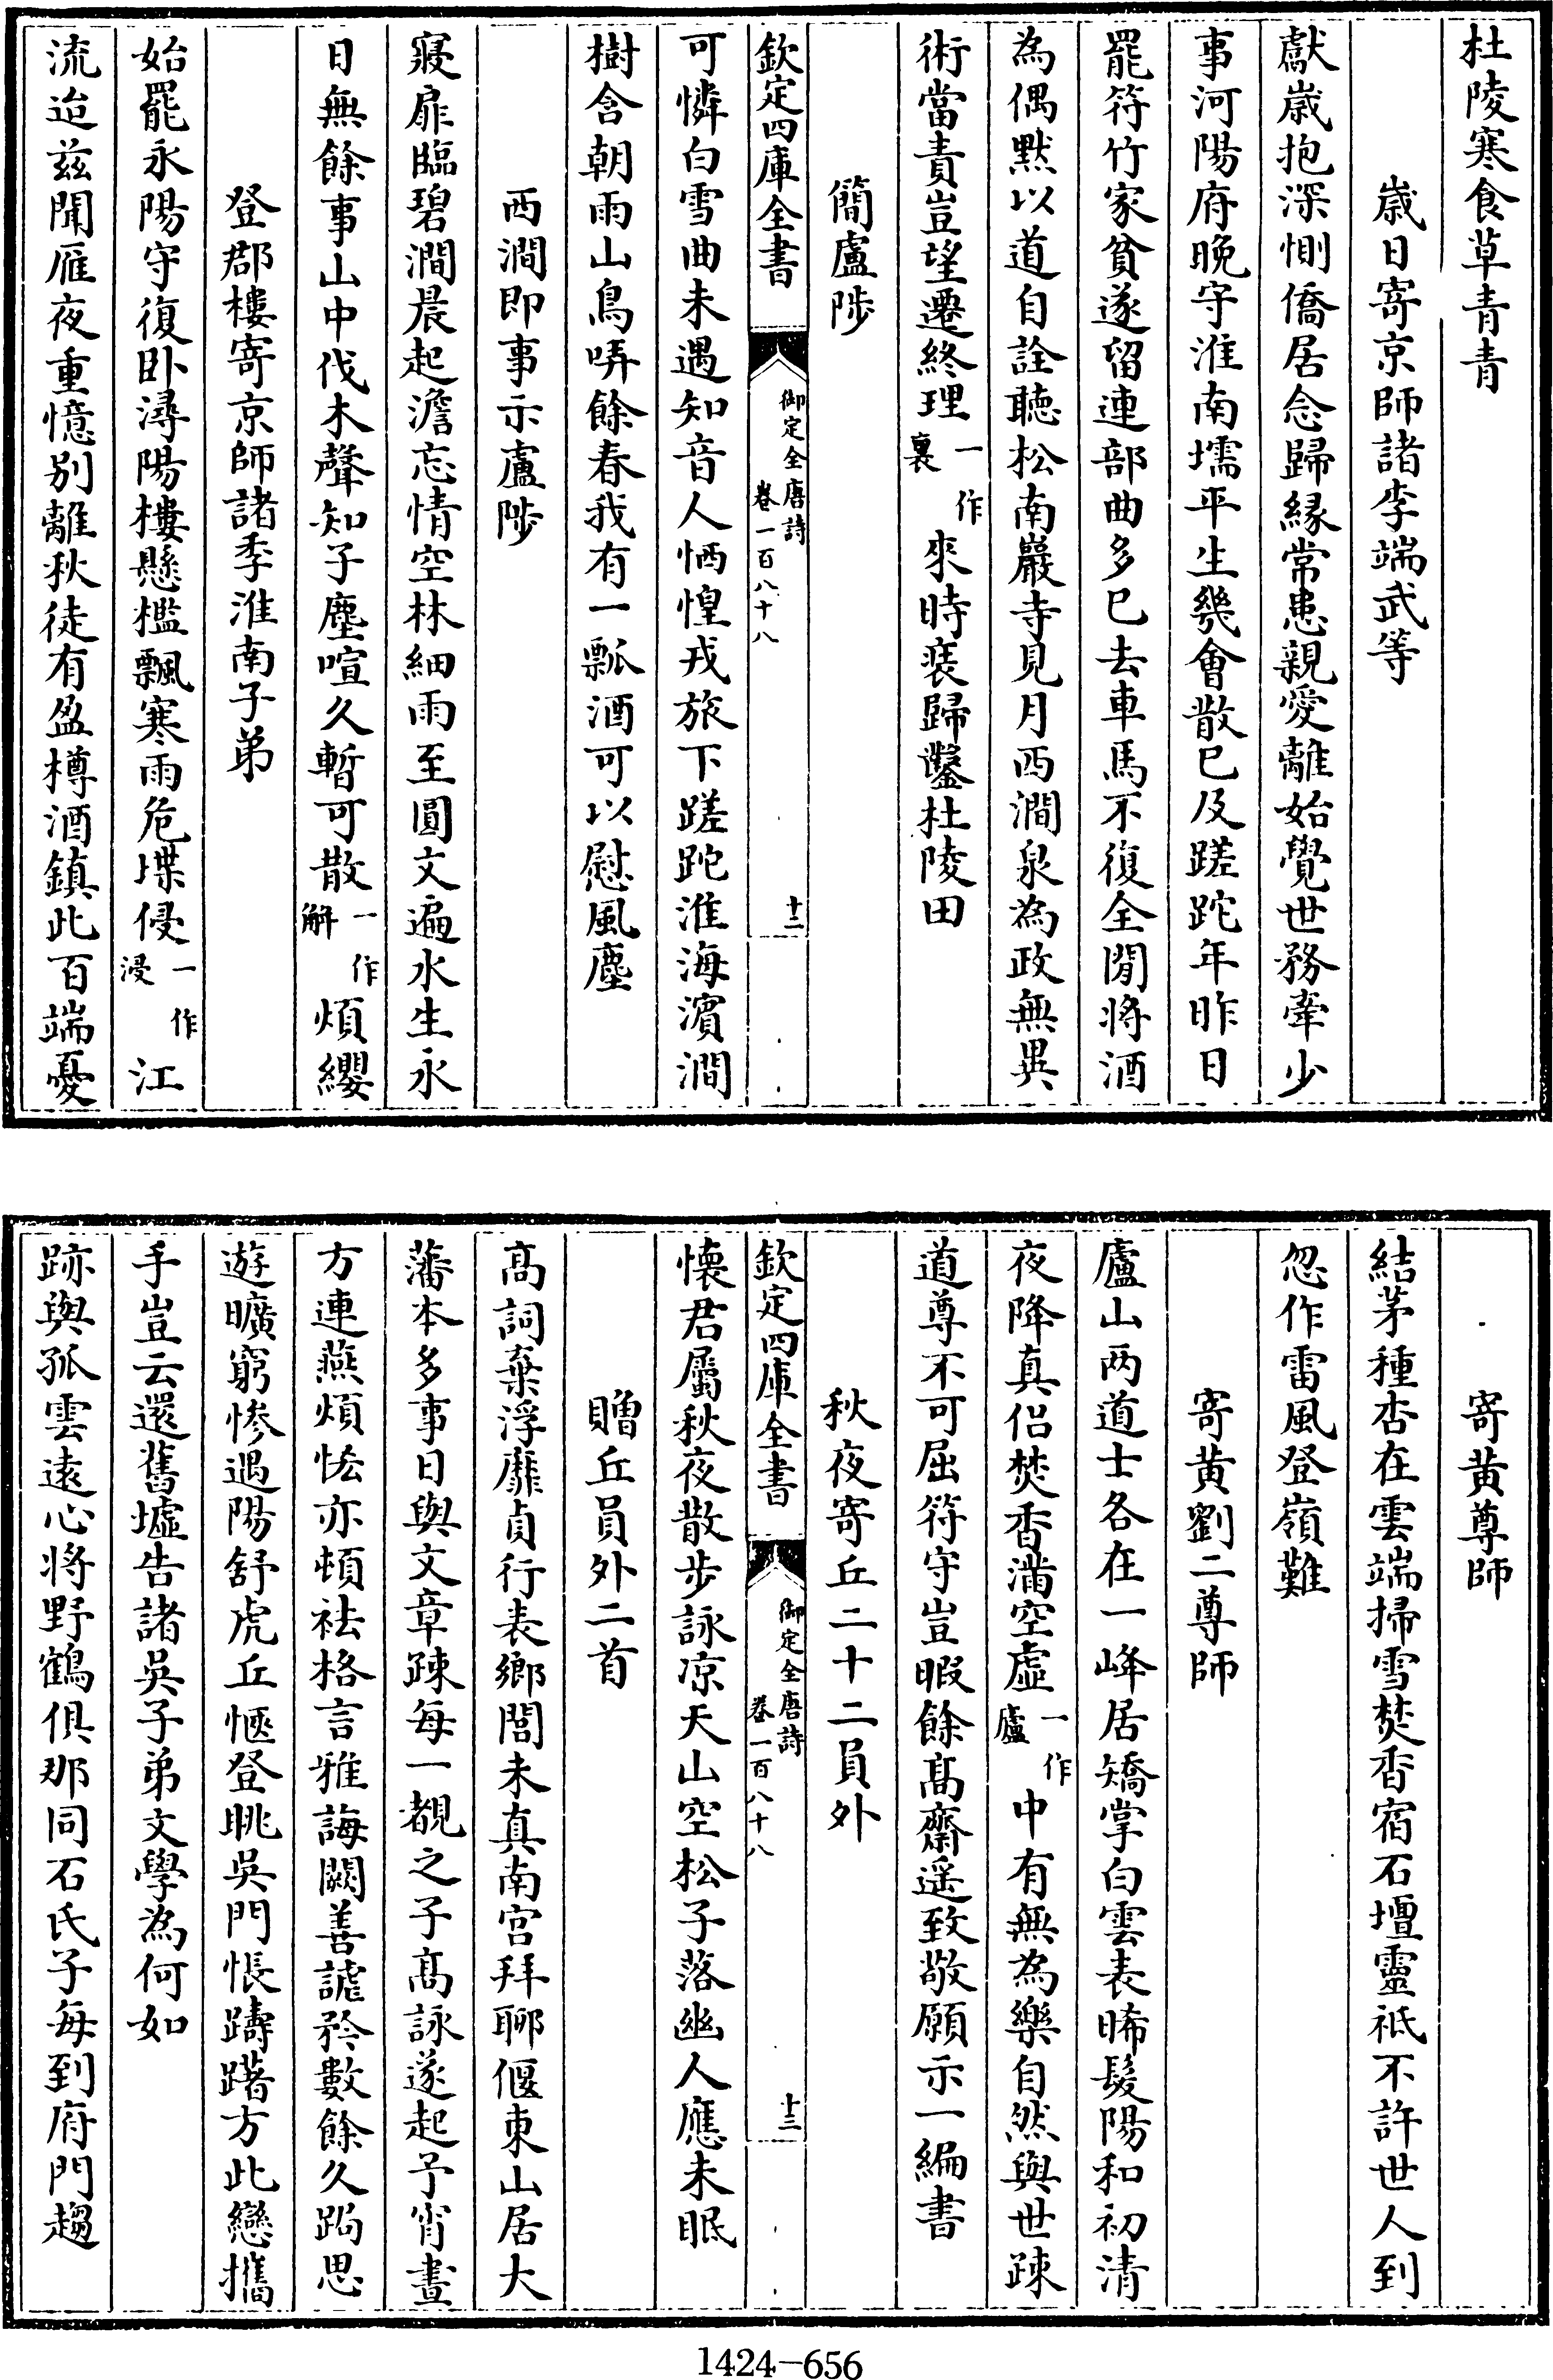 杜陵寒食草青青
歲日寄京師諸李端武等
獻歲抱深惻僑居念歸緣常患親愛離始覺世務牽少
事河陽府晚守淮南壖平生幾會散已及蹉跎年昨日
罷符竹家貧遂留連部曲多已去車馬不復全閒將酒
為偶默以道自詮聽松南巖寺見月西澗泉為政無異
術當責豈望遷終理一作裏來時裝歸鑿杜陵田
簡盧陟
欽定四庫全書
御定全唐詩
卷一百八十八
十二
可憐白雪曲未遇知音人恓惶戎旅下蹉跎淮海濱澗
樹含朝雨山鳥哢餘春我有一瓢酒可以慰風塵
西澗即事示盧陟
寢扉臨碧澗晨起澹忘情空林細雨至圓文遍水生永
日無餘事山中伐木聲知子塵喧久暫可散一作解煩纓
登郡樓寄京師諸季淮南子弟
始罷永陽守復卧潯陽樓懸檻飄寒雨危堞侵一作浸江
流迨兹聞雁夜重憶别離秋徒有盈樽酒鎮此百端憂
寄黄尊師
結茅種杏在雲端掃雪焚香宿石壇靈祗不許世人到
忽作雷風登嶺難
寄黄劉二尊師
廬山两道士各在一峰居矯掌白雲表晞髮陽和初清
夜降真侣焚香滿空虚一作廬中有無為樂自然與世疎
道尊不可屈符守豈暇餘高齋遥致敬願示一編書
秋夜寄丘二十二員外
欽定四庫全書
御定全唐詩
卷一百八十八
十三
懷君屬秋夜散步詠凉天山空松子落幽人應未眠
贈丘員外二首
高詞棄浮靡貞行表鄉閭未真南宫拜聊偃東山居大
藩本多事日與文章疎每一覩之子高詠遂起予宵晝
方連燕煩恡亦頓袪格言雅誨闕善謔矜數餘久跼思
遊曠窮惨遇陽舒虎丘愜登眺吳門悵躊躇方此戀攜
手豈云還舊墟告諸吳子弟文學為何如
跡與孤雲遠心將野鶴俱那同石氏子每到府門趨
1424-656